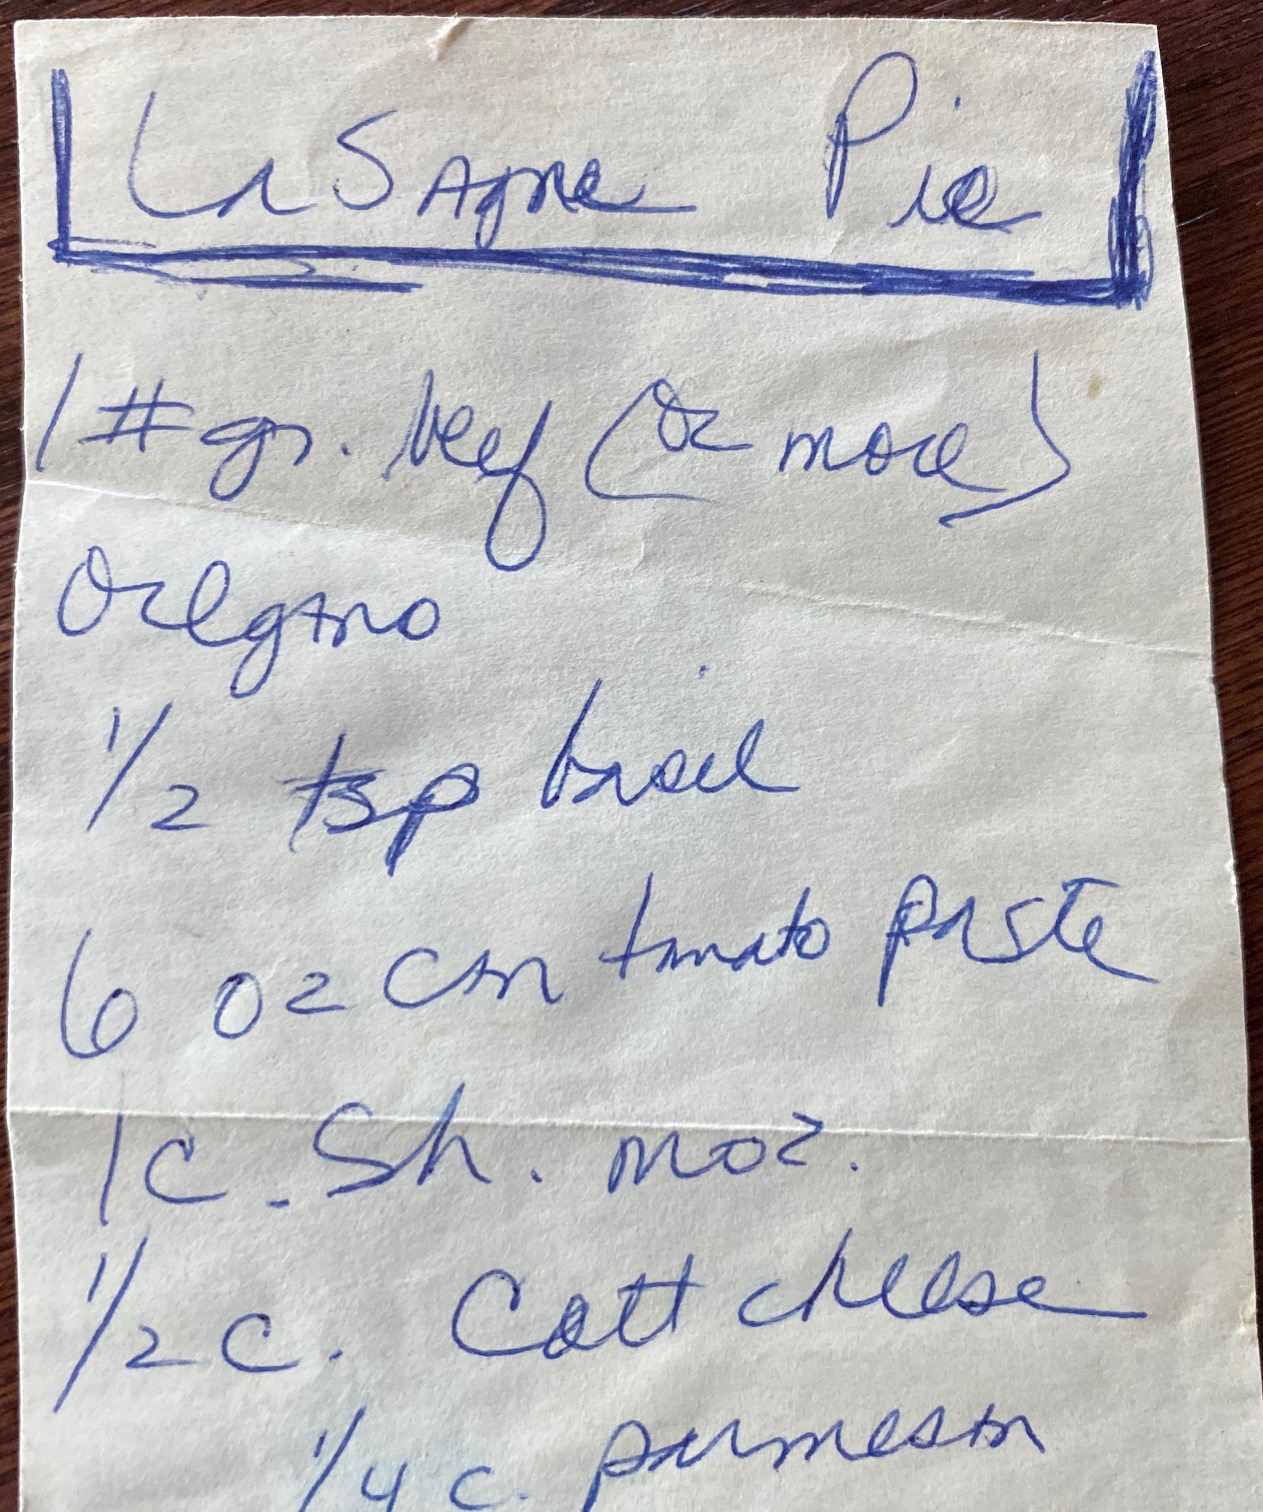 LaSagne Pie
1 # gr. beef (or more)
Oregano
1/2 tsp basil
6 oz can tomato paste
1 c. Sh. moz.
1/2 c. Cott cheese
1/4 c. parmesan